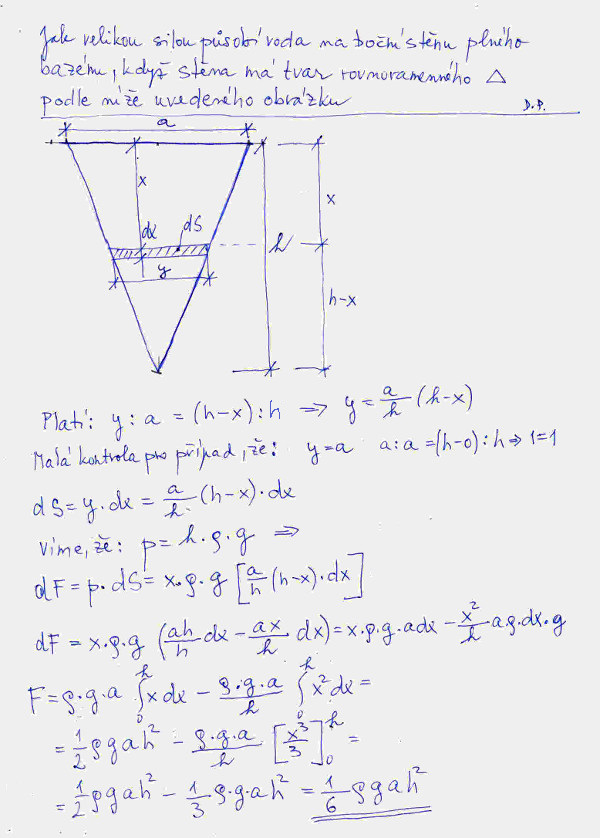 Jak velikou silou působí voda na boční stěnu plného
bazénu, když stěna má tvar rovnoramenného △
podle níže uvedeného obrázku
D.P.
a
x
dx
dS
y
h
x
h-x
Platí: y : a = (h-x) : h ⇒ y = a/h (h-x)
Malá kontrola pro případ, že: y=a a:a=(h-0):h ⇒ 1=1
dS = y·dx = a/h·(h-x)·dx
Víme, že: p = h·ρ·g ⇒
dF = p·dS = x·ρ·g [a/h (h-x)·dx]
dF = x·ρ·g (ah/h dx - ax/h dx) = x·ρ·g·adx - x²/h aρ·dx·g
F = ρ·g·a ∫₀ʰ x dx - ρ·g·a/h ∫₀ʰ x² dx =
= 1/2 ρgah² - ρ·g·a/h [x³/3]₀ʰ =
= 1/2 ρgah² - 1/3 ρ·g·ah² = 1/6 ρgah²